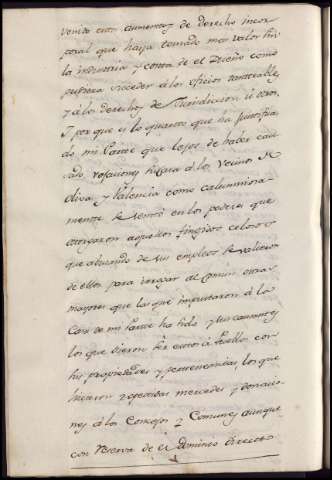 venido con aumentos de derecho incor
poral que haya tomado mas valor por
la industria y costa de el Dueño como
pudiera suceder á los oficios
y á los derechos de Jurisdiccion ú otros,
Y por que si lo quarto que ha justifica
do mi Parte que lejos de haber cau
sado vejaciones hizera á los Vecinos de
Oliva y Valencia como calumniosa
mente se sentó en los poderes que
otorgaron aquellos fingidos celosos
que abusando de sus empleos se valieron
de ellos para vejar al comun
mayores que las que imputaron á la
Casa de mi Parte ha sido y sus causantes
los que dieron ser exitos á Pueblos con
sus propiedades y pertenencias los que
hicieron repetidas mercedes y donacio
nes á los Concejos y Comunes aunque
con reserva de el dominio directo